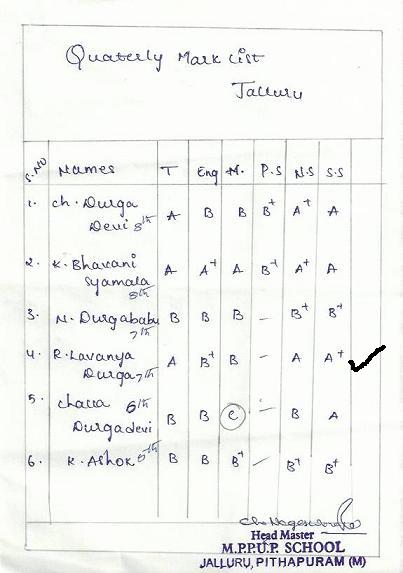 Quaterly Mark List
Jalluru
S.NO Names T Eng M. P.S N.S S.S
1. ch. Durga
Devi 8th A B B B+ A+ A
2. K. Bhavani
Syamala
8th A A+ A B+ A+ A
3. N. Durgababu
7th B B B - B+ B+
4. R. Lavanya
Durga 7th A B+ B - A A+
5. challa 6th
Durgadevi B B C - B A
6. K. Ashok 5th B B B+ - B+ B+
Head Master
M.P.P.U.P. SCHOOL
JALLURU, PITHAPURAM (M)